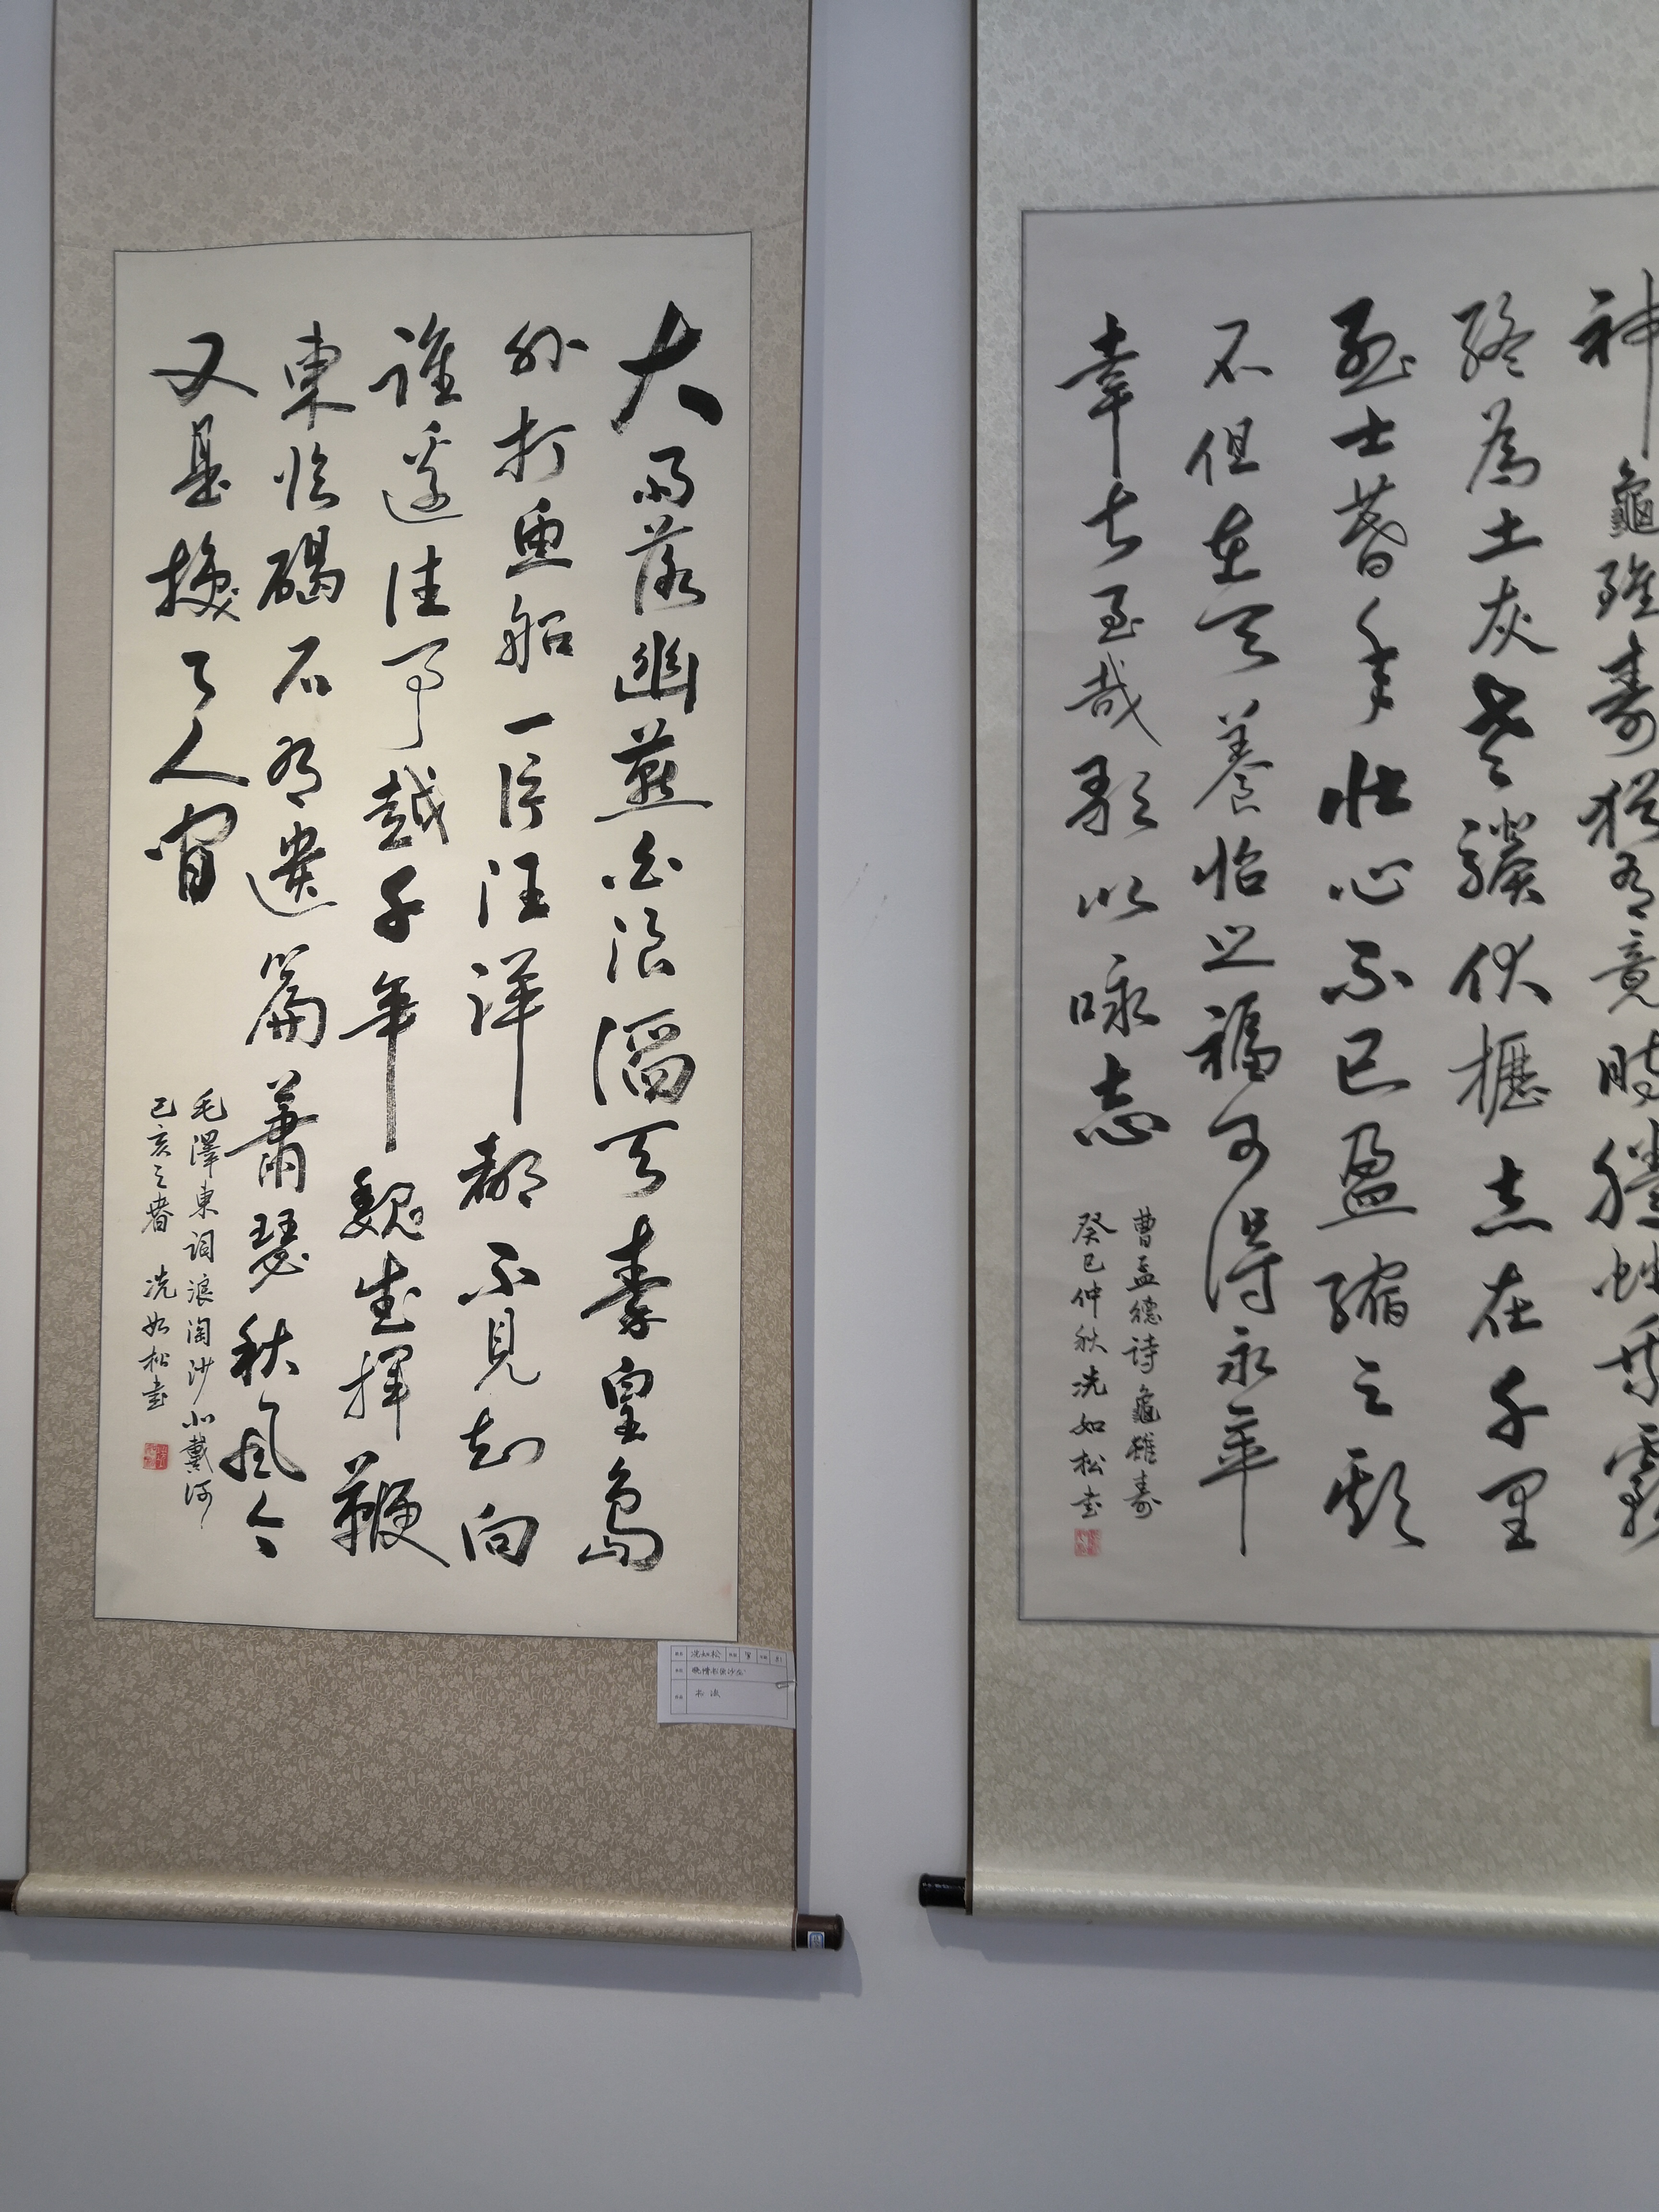 大雨落幽燕白浪滔天秦皇島
外打魚船一片汪洋都不見知向
誰邊往事越千年魏武揮鞭
東臨碣石有遺篇蕭瑟秋風今
又是換了人間
毛澤東詞浪淘沙北戴河
己亥之春 冼如松書
冼如松 男 81
书法
神龜雖壽猶有竟時騰蛇乘霧
終為土灰老驥伏櫪志在千里
烈士暮年壯心不已盈縮之期
不但在天養怡之福可得永年
幸甚至哉歌以咏志
曹孟德诗龜雖壽
癸巳仲秋冼如松書